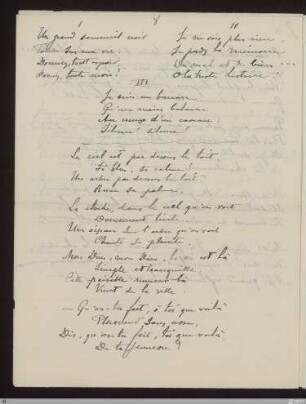 8
I
Un grand sommeil noir
Tombe sur ma vie.
Dormez, tout espoir,
Dormez, toute envie !
II
Je ne vois plus rien,
Je perds la mémoire
Du mal et du bien ...
O la triste histoire !
III
Je suis un berceau
Qu'une main balance
Au creux d'un caveau.
Silence ! silence !
Le ciel est par dessus le toit
Si bleu, si calme !
Un arbre par dessus le toit
Berce sa palme.
La cloche dans le ciel qu'on voit
Doucement tinte.
Un oiseau sur l'arbre qu'on voit
Chante sa plainte.
Mon Dieu, mon Dieu, la vie est là
Simple et tranquille.
Cette paisible rumeur-là
Vient de la ville.
— Qu'as-tu fait, ô toi que voilà
Pleurant sans cesse,
Dis, qu'as-tu fait, toi que voilà
De ta jeunesse ?